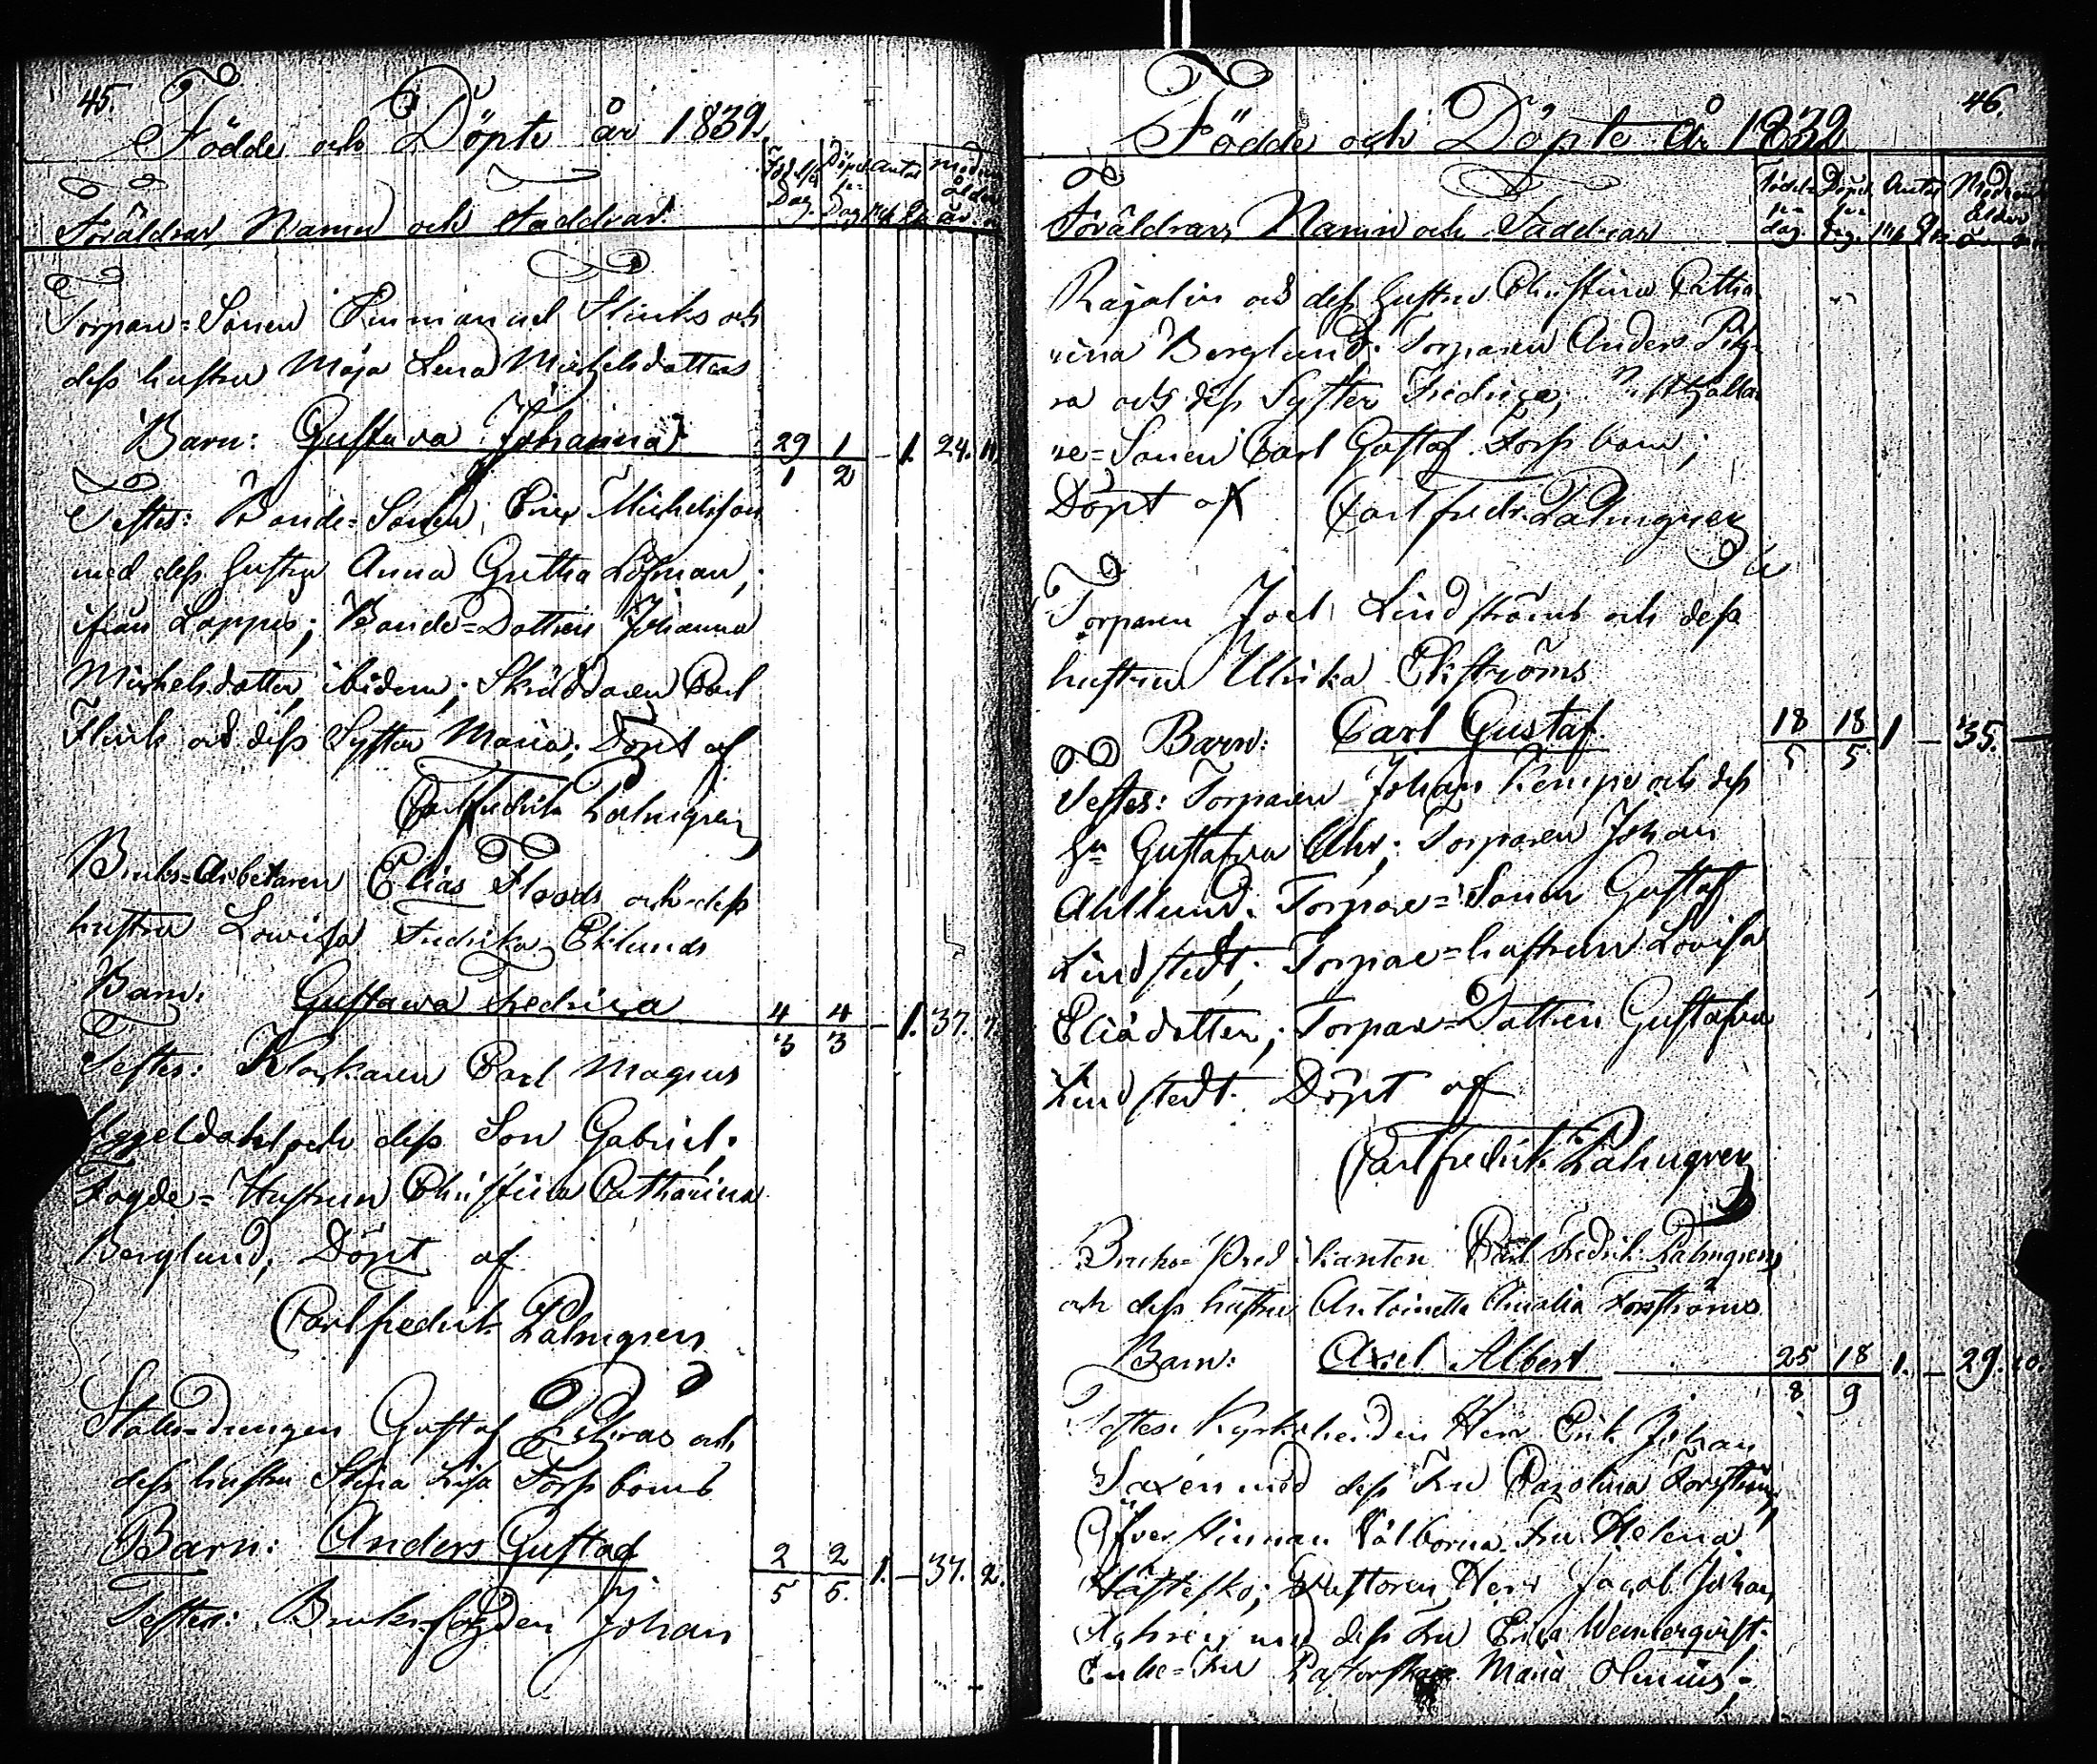 45.
Födde och Döpte år 1839
Födelse Dag. Döpelse Dag Antal Mk Qk Modrens ålder år m
Föräldrar Namn och Faddrar
Torpare=Sonen Emmanuel Flinks och
dess hustru Maja Lena Michelsdotters
Barn: Gustava Johanna 29/1 1/2 – 1. 24. 11
Testes: Bonde=Sonen, Michelsson
med dess hustru Anna Gretha Löfman,
ifrån Lappes; Bonde=Dottren Johanna
Michelsdotter, ibidem; Skräddaren Carl
Flink och dess Syster Maria; Döpt af
Carl Fredrik Palmgren
Bruks=Arbetaren Elias Floods och dess
hustru Lowisa Fredrika Eklunds
Barn: Gustawa Fredrica 4/3 4/3 – 1. 37. 7.
Testes: Klockaren Carl Magnus
och dess Son Gabriel;
Fogde=Hustrun Christina Catharina
Berglund; Döpt af
Carl Fredrik Palmgren
Gustaf och
dess hustru Stina Lisa Forssboms
Barn: Anders Gustaf 2/5 2/5. 1. – 37. 2.
Testes: Bruksfogden Johan
46.
Födde och Döpte År 1839
Födelse dag Döpelse dag. Antal Mk Qk Modrens Ålder år m
Föräldrars Namn och Faddrar
Rajalin och dess hustru Christina Catha
rina Berglund. Torparen Anders
ra och dess Syster Fredrica;
re=Sonen Carl Gustaf Forssbom;
Döpt af Carl Fredr. Palmgren
Torparen Joel Lindströms och dess
hustru Ullrika Ekströms
Barn: Carl Gustaf. 18/5. 18/5 1 – 35. –
Testes: Torparen Johan Kempe och dess
Hu Gustafva Torparen Johan
Ahllund. Torpare=Sonen Gustaf
Lindstedt; Torpare=hustrun Lovisa
Eliædotter; Torpare=Dottren Gustafva
Lindstedt. Döpt af
Carl Fredrik Palmgren
Bruks=Predikanten Carl Fredrik Palmgrens
och dess hustru Antoinetta Amalia Forsströms
Barn: Axel Albert 25/8 18/9 1. – 29. 10.
Testes: Kyrkoherden Herr Erik Johan
Saxén med dess Fru Carolina Forsström;
Öfverstinnan Välborna Fru Helena
Hästesko; Pastoren Herr Jacob Johan
med dess Fru Erica Wennerqvist.
Enke=Fru Pastorskan Maria Olenius;